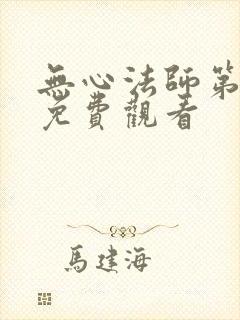 無心法師第
免費觀看
馬建海